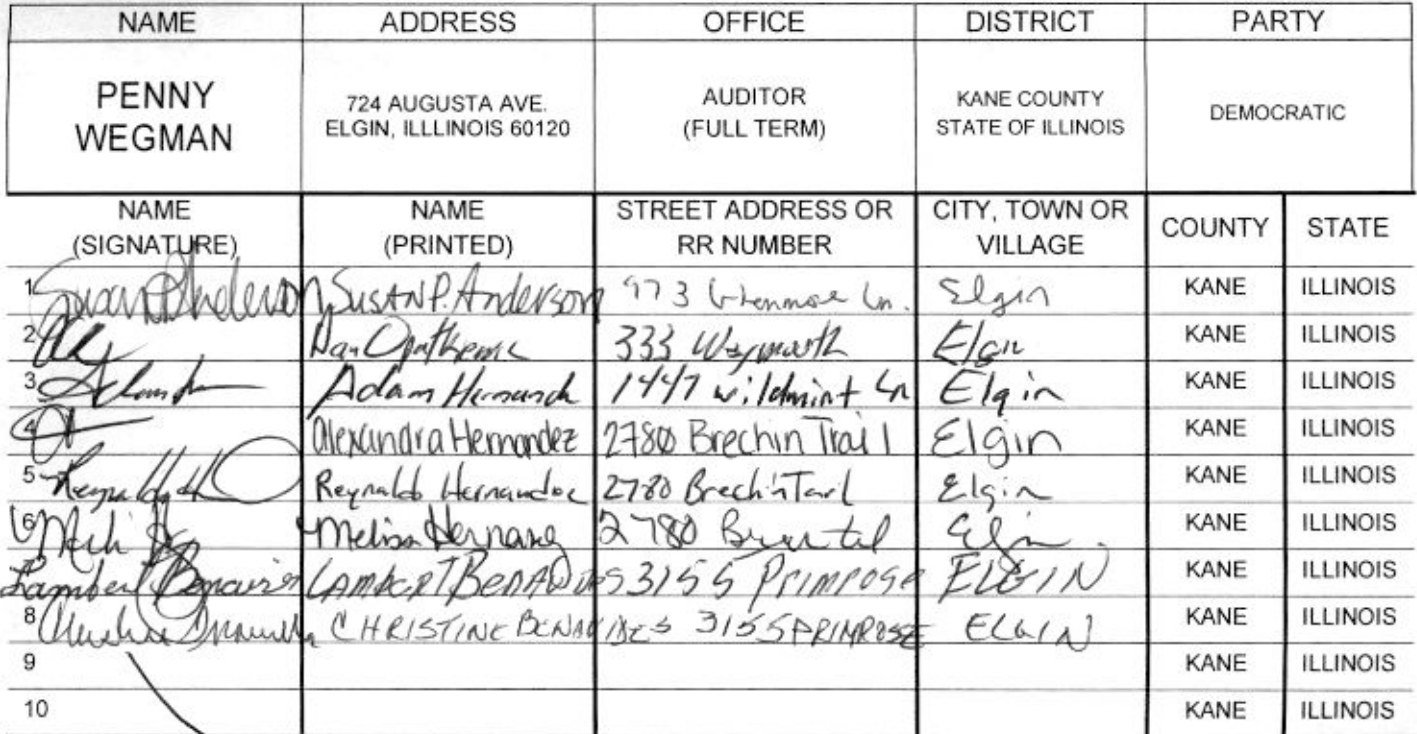 NAME ADDRESS OFFICE DISTRICT PARTY
PENNY WEGMAN 724 AUGUSTA AVE. ELGIN, ILLLINOIS 60120 AUDITOR (FULL TERM) KANE COUNTY STATE OF ILLINOIS DEMOCRATIC
NAME (SIGNATURE) NAME (PRINTED) STREET ADDRESS OR RR NUMBER CITY, TOWN OR VILLAGE COUNTY STATE
1 Susan P Anderson SUSAN P. Anderson 973 Ln. Elgin KANE ILLINOIS
2 Dan 333 Weymouth Elgin KANE ILLINOIS
3 Adam 1447 wildmint Ln Elgin KANE ILLINOIS
4 Alexandra Hernandez 2780 Brechin Trail Elgin KANE ILLINOIS
5 Reynaldo Reynaldo Hernandez 2780 Brechin Elgin KANE ILLINOIS
6 Melisa 2780 Elgin KANE ILLINOIS
Lambert Benavides LAMBERT BENAVIDES 3155 PRIMROSE ELGIN KANE ILLINOIS
8 CHRISTINE BENAVIDES 3155 PRIMROSE ELGIN KANE ILLINOIS
9 KANE ILLINOIS
10 KANE ILLINOIS